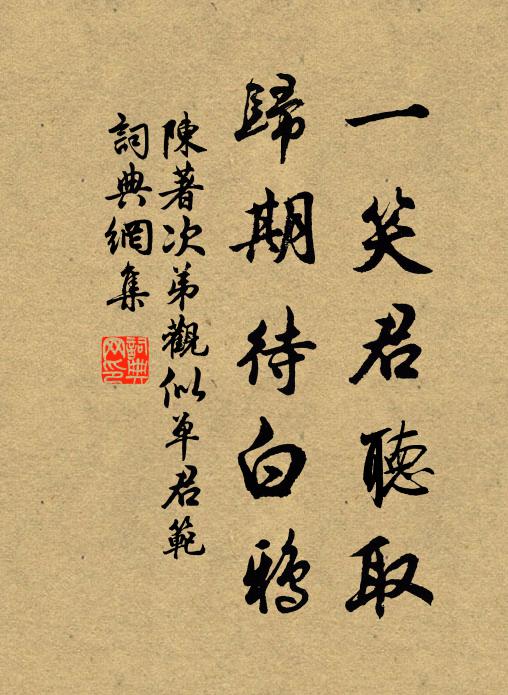 一笑君聽取
歸期待白鴉
陳著次弟觀似單君範
詞典網集
詞典网印